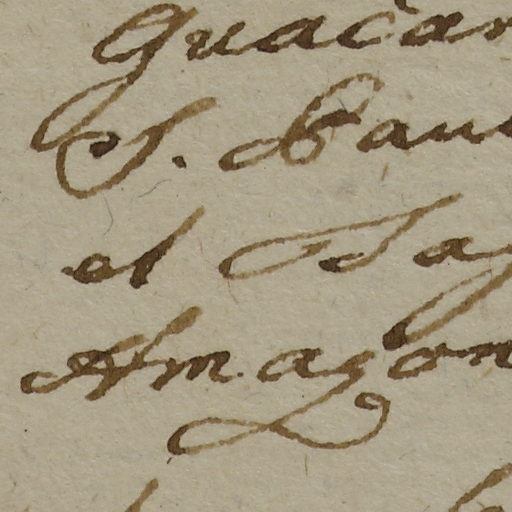 guacan
S. Pau
et Ja
Amazon